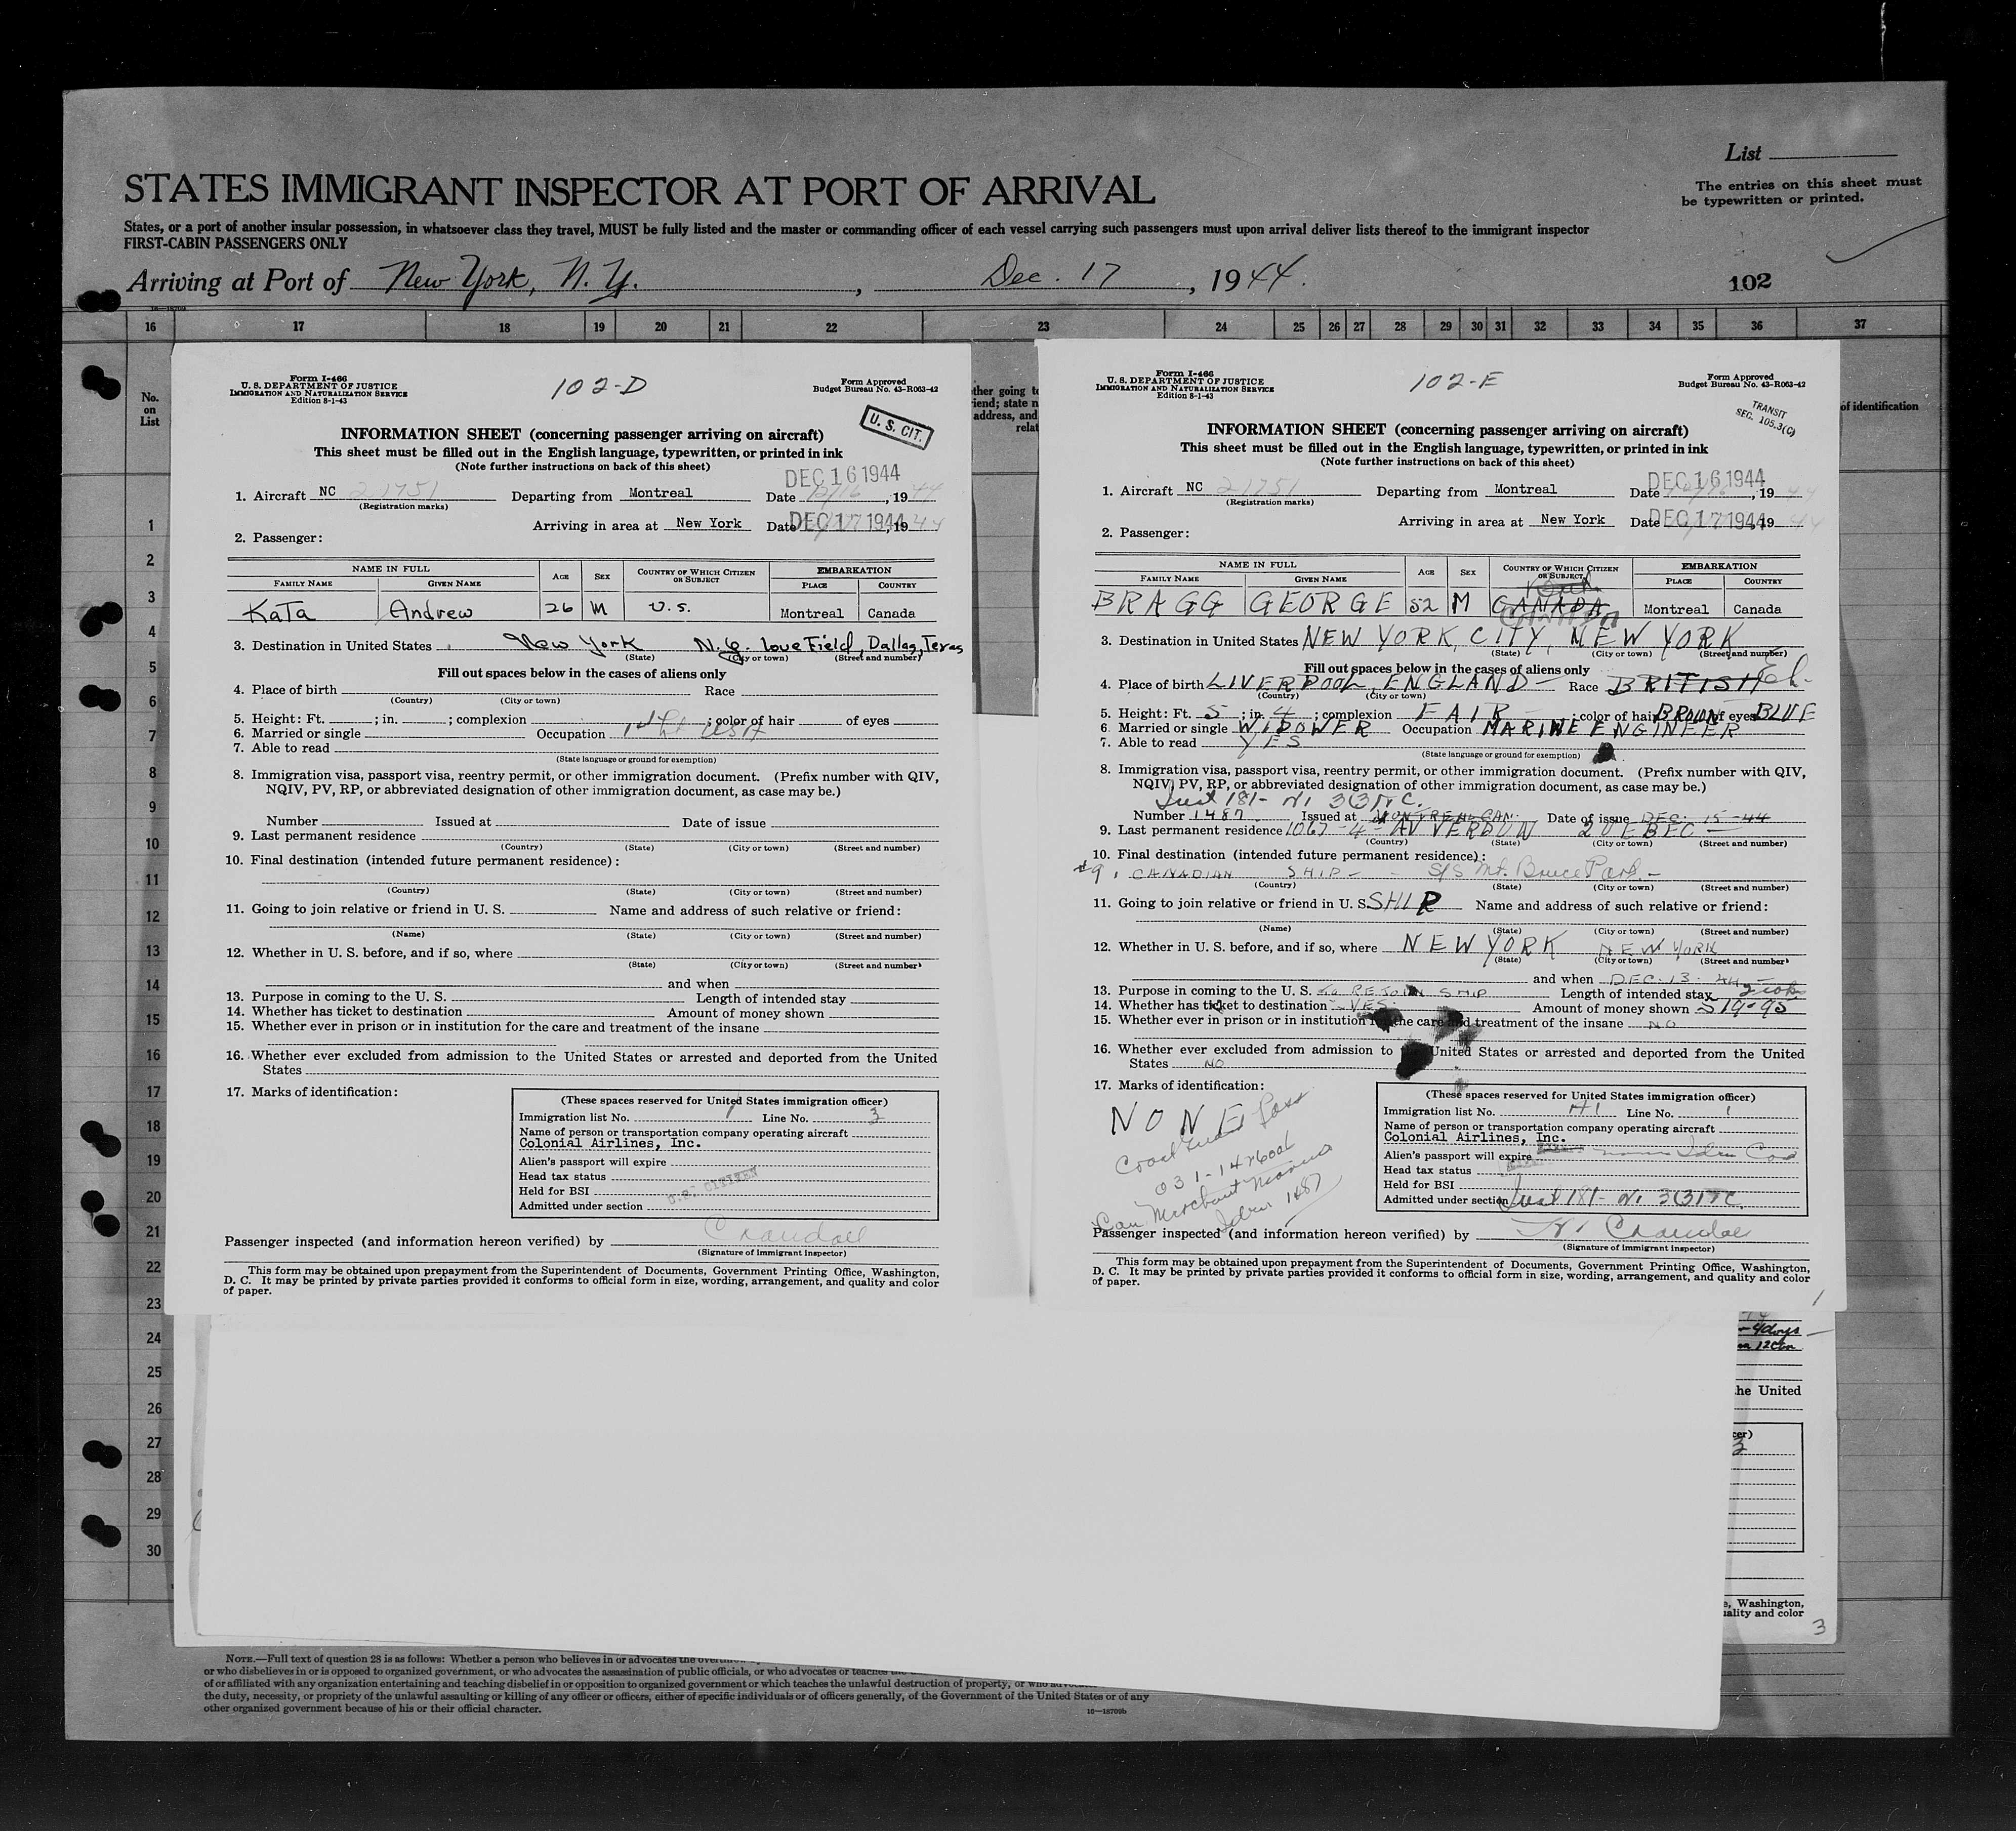 List
STATES IMMIGRANT INSPECTOR AT PORT OF ARRIVAL
The entries on this sheet must
be typewritten or printed.
States, or a port of another insular possession, in whatsoever class they travel, MUST be fully listed and the master or commanding officer of each vessel carrying such passengers must upon arrival deliver lists thereof to the immigrant inspector
FIRST-CABIN PASSENGERS ONLY
Arriving at Port of New York, N. Y. , Dec. 17 , 1944.
102
16 17 18 19 20 21 22 23 24 25 26 27 28 29 30 31 32 33 34 35 36 37
No.
on
List
1
2
3
4
5
6
7
8
9
10
11
12
13
14
15
16
17
18
19
20
21
22
23
24
25
26
27
28
29
30
of identification
Form I-466
U. S. DEPARTMENT OF JUSTICE
IMMIGRATION AND NATURALIZATION SERVICE
Edition 8-1-43
102-D
Form Approved
Budget Bureau No. 43-R063-42
U. S. CIT.
INFORMATION SHEET (concerning passenger arriving on aircraft)
This sheet must be filled out in the English language, typewritten, or printed in ink
(Note further instructions on back of this sheet)
DEC 16 1944
1. Aircraft NC 21751 Departing from Montreal Date 12/16, 1944
(Registration marks)
Arriving in area at New York Date DEC 17 1944, 1944
2. Passenger:
NAME IN FULL AGE SEX COUNTRY OF WHICH CITIZEN OR SUBJECT EMBARKATION
FAMILY NAME GIVEN NAME PLACE COUNTRY
Kata Andrew 26 M U.S. Montreal Canada
3. Destination in United States New York N.Y. Love Field, Dallas, Texas
(State) (City or town) (Street and number)
Fill out spaces below in the cases of aliens only
4. Place of birth Race
(Country) (City or town)
5. Height: Ft. ; in. ; complexion ; color of hair of eyes
6. Married or single Occupation 1st Lt USA
7. Able to read
(State language or ground for exemption)
8. Immigration visa, passport visa, reentry permit, or other immigration document. (Prefix number with QIV,
NQIV, PV, RP, or abbreviated designation of other immigration document, as case may be.)
Number Issued at Date of issue
9. Last permanent residence
(Country) (State) (City or town) (Street and number)
10. Final destination (intended future permanent residence):
(Country) (State) (City or town) (Street and number)
11. Going to join relative or friend in U. S. Name and address of such relative or friend:
(Name) (State) (City or town) (Street and number)
12. Whether in U. S. before, and if so, where
(State) (City or town) (Street and number)
and when
13. Purpose in coming to the U. S. Length of intended stay
14. Whether has ticket to destination Amount of money shown
15. Whether ever in prison or in institution for the care and treatment of the insane
16. Whether ever excluded from admission to the United States or arrested and deported from the United
States
17. Marks of identification:
(These spaces reserved for United States immigration officer)
Immigration list No. 1 Line No. 3
Name of person or transportation company operating aircraft
Colonial Airlines, Inc.
Alien's passport will expire
Head tax status
U.S. CITIZEN
Held for BSI
Admitted under section
Passenger inspected (and information hereon verified) by Crandall
(Signature of immigrant inspector)
This form may be obtained upon prepayment from the Superintendent of Documents, Government Printing Office, Washington,
D. C. It may be printed by private parties provided it conforms to official form in size, wording, arrangement, and quality and color
of paper.
ther going to
iend; state n
address, and
relat
Form I-466
U. S. DEPARTMENT OF JUSTICE
IMMIGRATION AND NATURALIZATION SERVICE
Edition 8-1-43
102-E
Form Approved
Budget Bureau No. 43-R063-42
TRANSIT
SEC. 105.3(C)
INFORMATION SHEET (concerning passenger arriving on aircraft)
This sheet must be filled out in the English language, typewritten, or printed in ink
(Note further instructions on back of this sheet)
DEC 16 1944
1. Aircraft NC 21751 Departing from Montreal Date 12/16, 1944
(Registration marks)
Arriving in area at New York Date DEC 17 1944, 1944
2. Passenger:
NAME IN FULL AGE SEX COUNTRY OF WHICH CITIZEN OR SUBJECT EMBARKATION
FAMILY NAME GIVEN NAME PLACE COUNTRY
BRAGG GEORGE 52 M CANADA Montreal Canada
CANADA
3. Destination in United States NEW YORK, CITY, NEW YORK
(State) (City or town) (Street and number)
Fill out spaces below in the cases of aliens only
4. Place of birth LIVERPOOL, ENGLAND - Race BRITISH
(Country) (City or town)
5. Height: Ft. 5 ; in. 4 ; complexion FAIR ; color of hair BROWN of eyes BLUE
6. Married or single WIDOWER Occupation MARINE ENGINEER
7. Able to read YES
(State language or ground for exemption)
8. Immigration visa, passport visa, reentry permit, or other immigration document. (Prefix number with QIV,
NQIV, PV, RP, or abbreviated designation of other immigration document, as case may be.)
Number 1487 Issued at MONTREAL CAN. Date of issue DEC. 15-44
9. Last permanent residence 1067-4-AV VERDUN QUEBEC -
(Country) (State) (City or town) (Street and number)
10. Final destination (intended future permanent residence):
#9. CANADIAN SHIP - - S/S Mt. Bruce Park -
(Country) (State) (City or town) (Street and number)
11. Going to join relative or friend in U. S. SHIP Name and address of such relative or friend:
(Name) (State) (City or town) (Street and number)
12. Whether in U. S. before, and if so, where NEW YORK NEW YORK
(State) (City or town) (Street and number)
and when DEC. 13. 44
13. Purpose in coming to the U. S. to REJOIN SHIP Length of intended stay
14. Whether has ticket to destination YES. Amount of money shown $19.95
15. Whether ever in prison or in institution for the care and treatment of the insane NO
16. Whether ever excluded from admission to United States or arrested and deported from the United
States NO
17. Marks of identification:
NONE
Coast Guard Pass
Can Merchant Marine
Iden 1487
(These spaces reserved for United States immigration officer)
Immigration list No. A1 Line No. 1
Name of person or transportation company operating aircraft
Colonial Airlines, Inc.
Alien's passport will expire
Head tax status
Held for BSI
Admitted under section
Passenger inspected (and information hereon verified) by Crandall
(Signature of immigrant inspector)
This form may be obtained upon prepayment from the Superintendent of Documents, Government Printing Office, Washington,
D. C. It may be printed by private parties provided it conforms to official form in size, wording, arrangement, and quality and color
of paper.
1
-4days
he United
cer)
3
e, Washington,
uality and color
3
NOTE.—Full text of question 28 is as follows: Whether a person who believes in or advocates the
or who disbelieves in or is opposed to organized government, or who advocates the assassination of public officials, or who advocates or teaches
of or affiliated with any organization entertaining and teaching disbelief in or opposition to organized government or which teaches the unlawful destruction of property, or who
the duty, necessity, or propriety of the unlawful assaulting or killing of any officer or officers, either of specific individuals or of officers generally, of the Government of the United States or of any
other organized government because of his or their official character.
16—18709b